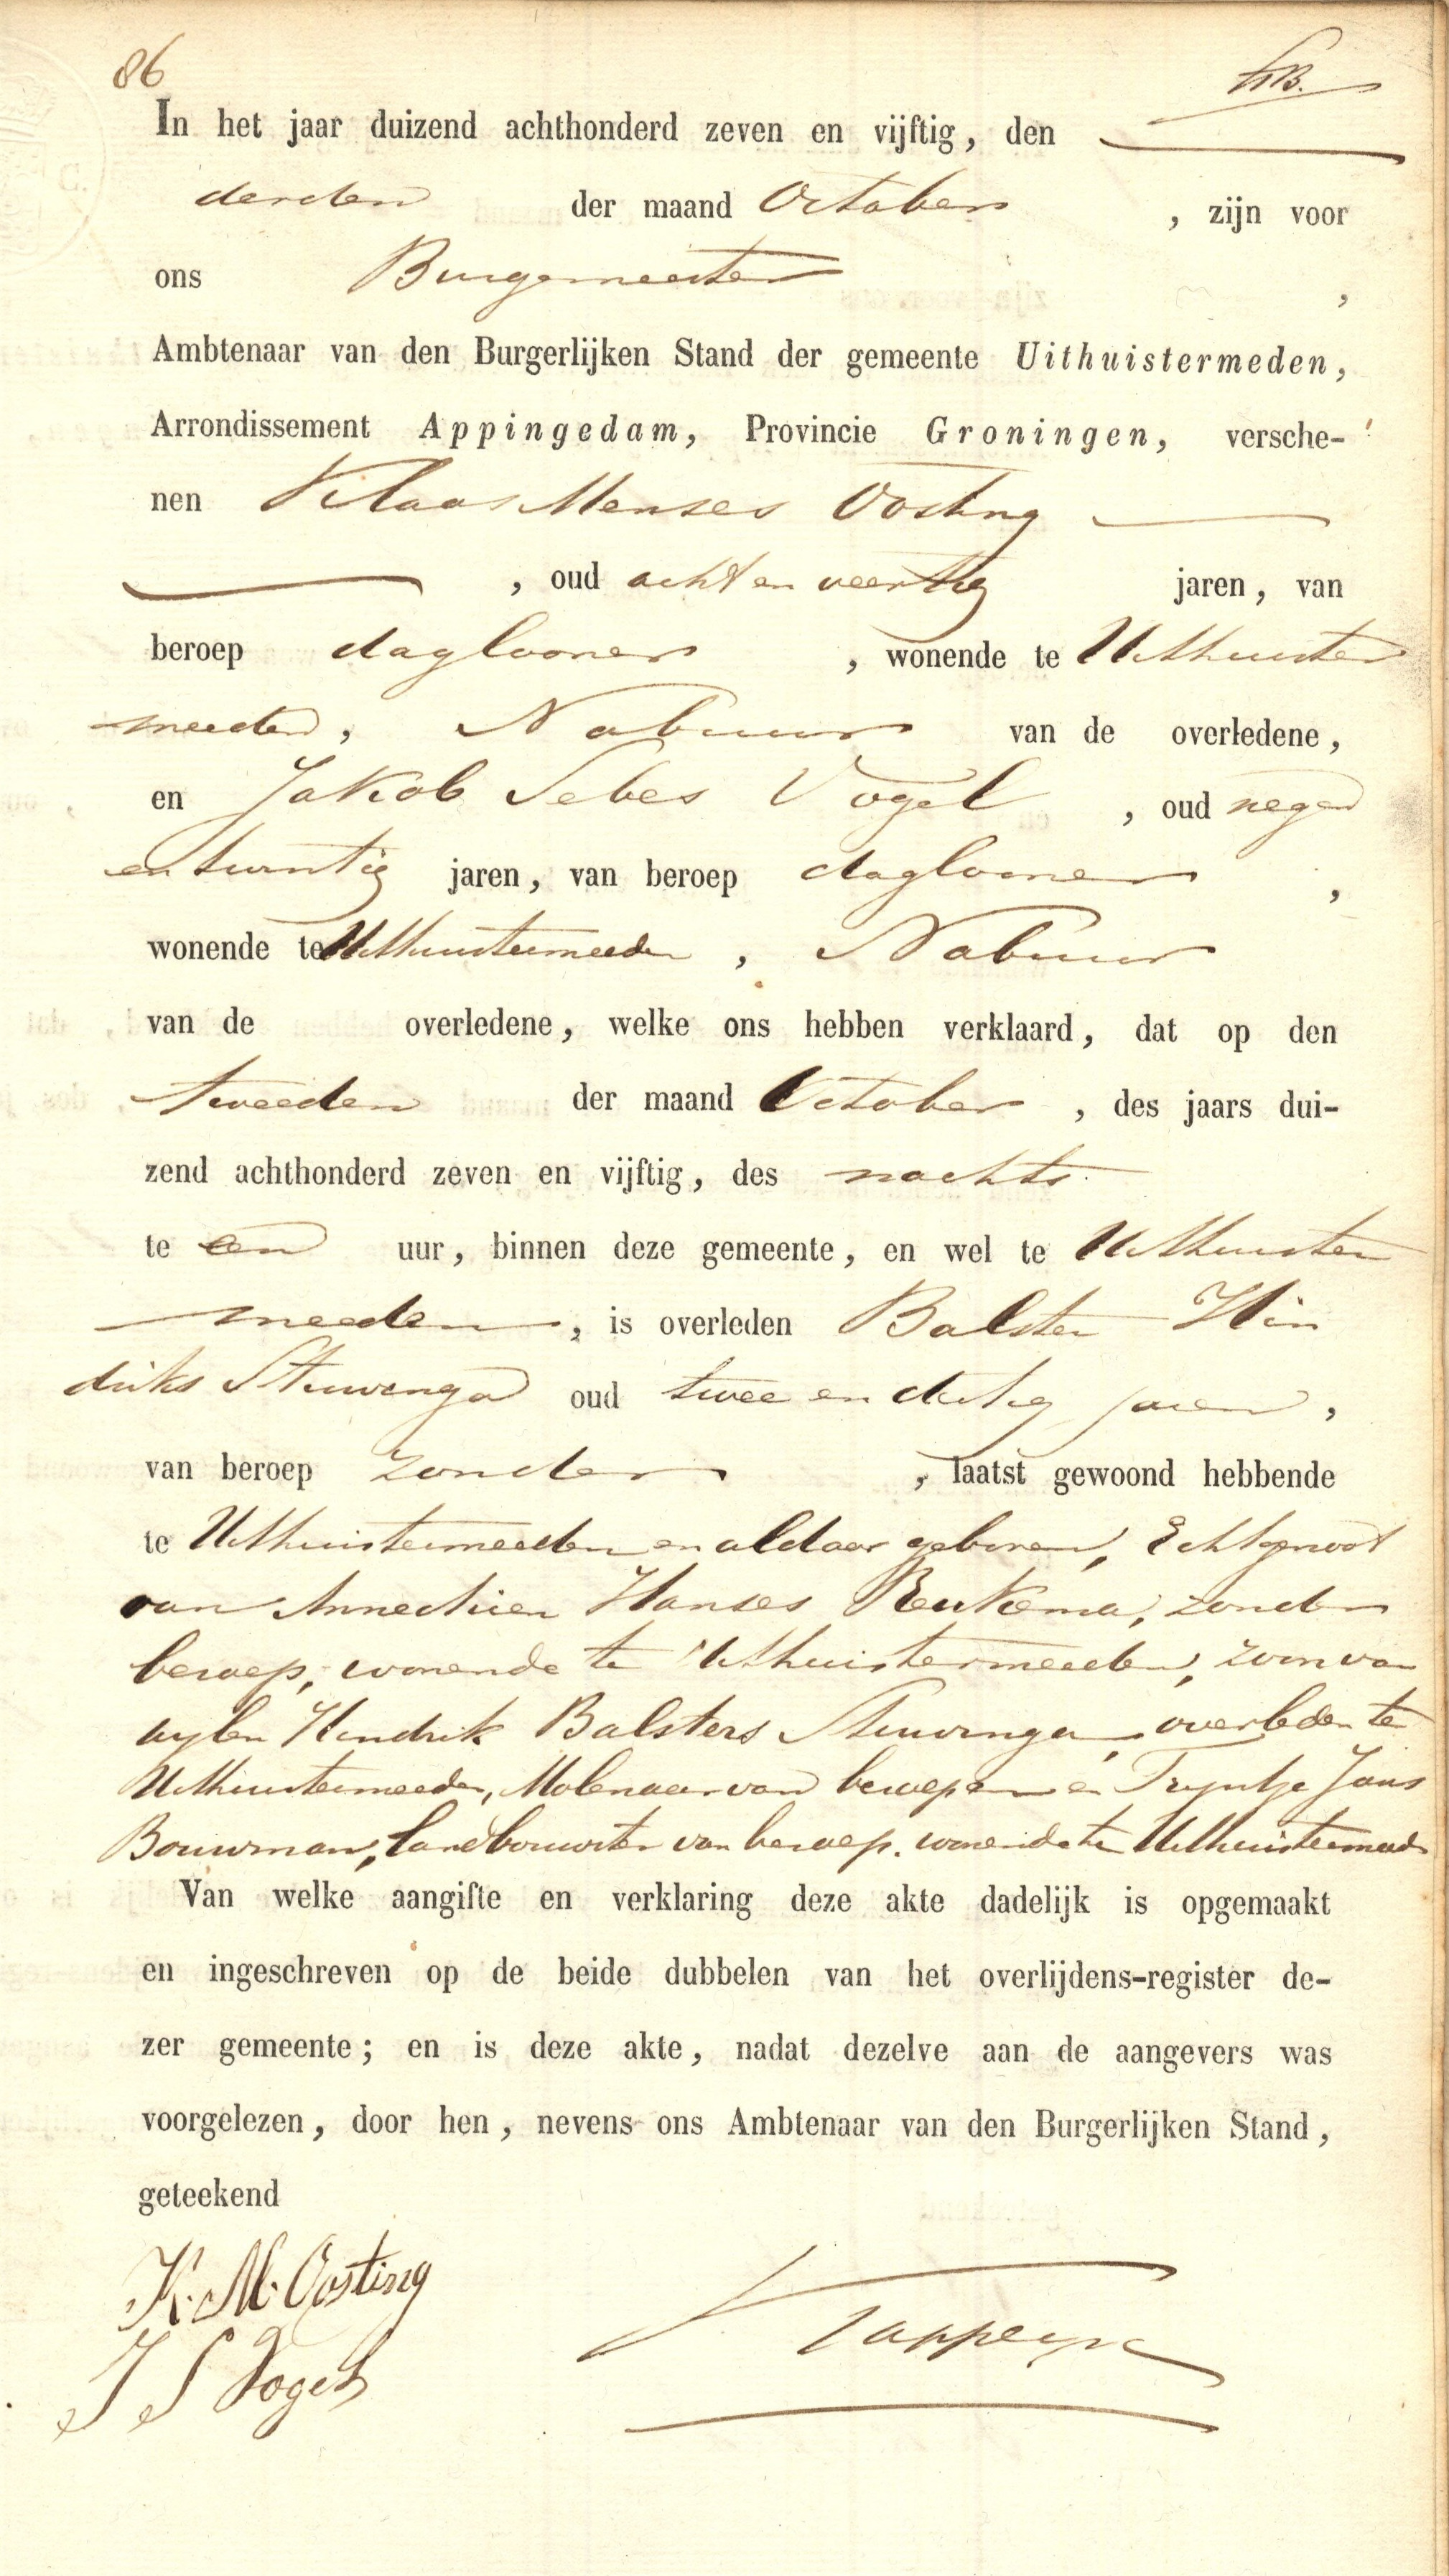 86
In het jaar duizend achthonderd zeven en vijftig, den
derden der maand October, zijn voor
ons Burgemeester,
Ambtenaar van den Burgerlijken Stand der gemeente Uithuistermeden,
Arrondissement Appingedam, Provincie Groningen, versche-
nen Klaas Menses Oosting
, oud acht en veertig jaren, van
beroep daglooner, wonende te Uithuister
meeden, Nabuur van de overledene,
en Jakob Sebes Vogel, oud negen
en twintig jaren, van beroep daglooner,
wonende te Uithuistermeeden, Nabuur
van de overledene, welke ons hebben verklaard, dat op den
tweeden der maand October, des jaars dui-
zend achthonderd zeven en vijftig, des nachts
te een uur, binnen deze gemeente, en wel te Uithuister
meeden, is overleden Balster Hin
driks Stuivenga oud twee en dertig jaren,
van beroep zonder, laatst gewoond hebbende
te Uithuistermeeden en aldaar geboren, Echtgenoot
van Annechien Hanses Reukema, zonder
beroep, wonende te Uithuistermeeden, zoon van
wylen Hendrik Balsters Stuivinga, overleden te
Uithuistermeeden, Molenaar van beroep en Tryntje Jans
Bouwman, Landbouwster van beroep. wonende te Uithuistermeeden
Van welke aangifte en verklaring deze akte dadelijk is opgemaakt
en ingeschreven op de beide dubbelen van het overlijdens-register de-
zer gemeente; en is deze akte, nadat dezelve aan de aangevers was
voorgelezen, door hen, nevens ons Ambtenaar van den Burgerlijken Stand,
geteekend
K. M. Oosting
J S Vogel